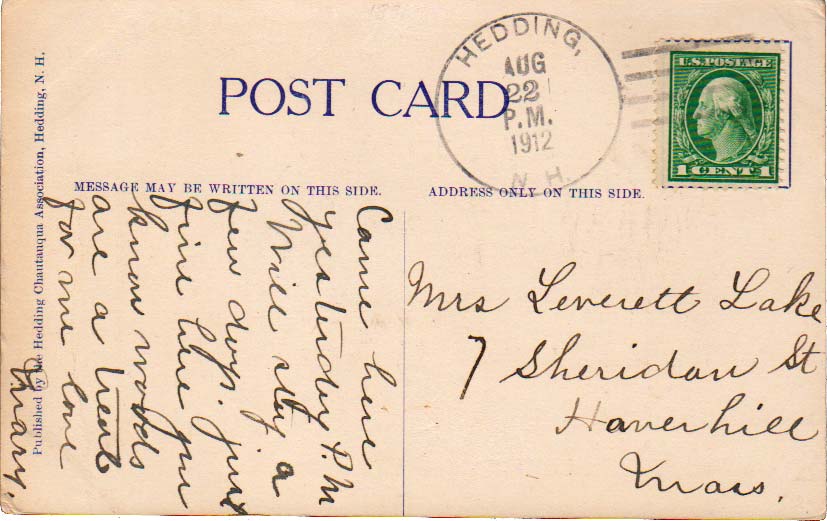 POST CARD
HEDDING,
AUG
22
P.M.
1912
N. H.
U.S. POSTAGE
1 CENT 1
MESSAGE MAY BE WRITTEN ON THIS SIDE.
ADDRESS ONLY ON THIS SIDE.
Published by the Hedding Chautauqua Association, Hedding, N. H.
Came here
yesterday P.M
Will stay a
few days. just
fine here you
know woods
are a treat
for me love
Mary.
Mrs Leverett Lake
7 Sheridan St
Haverhill
Mass.